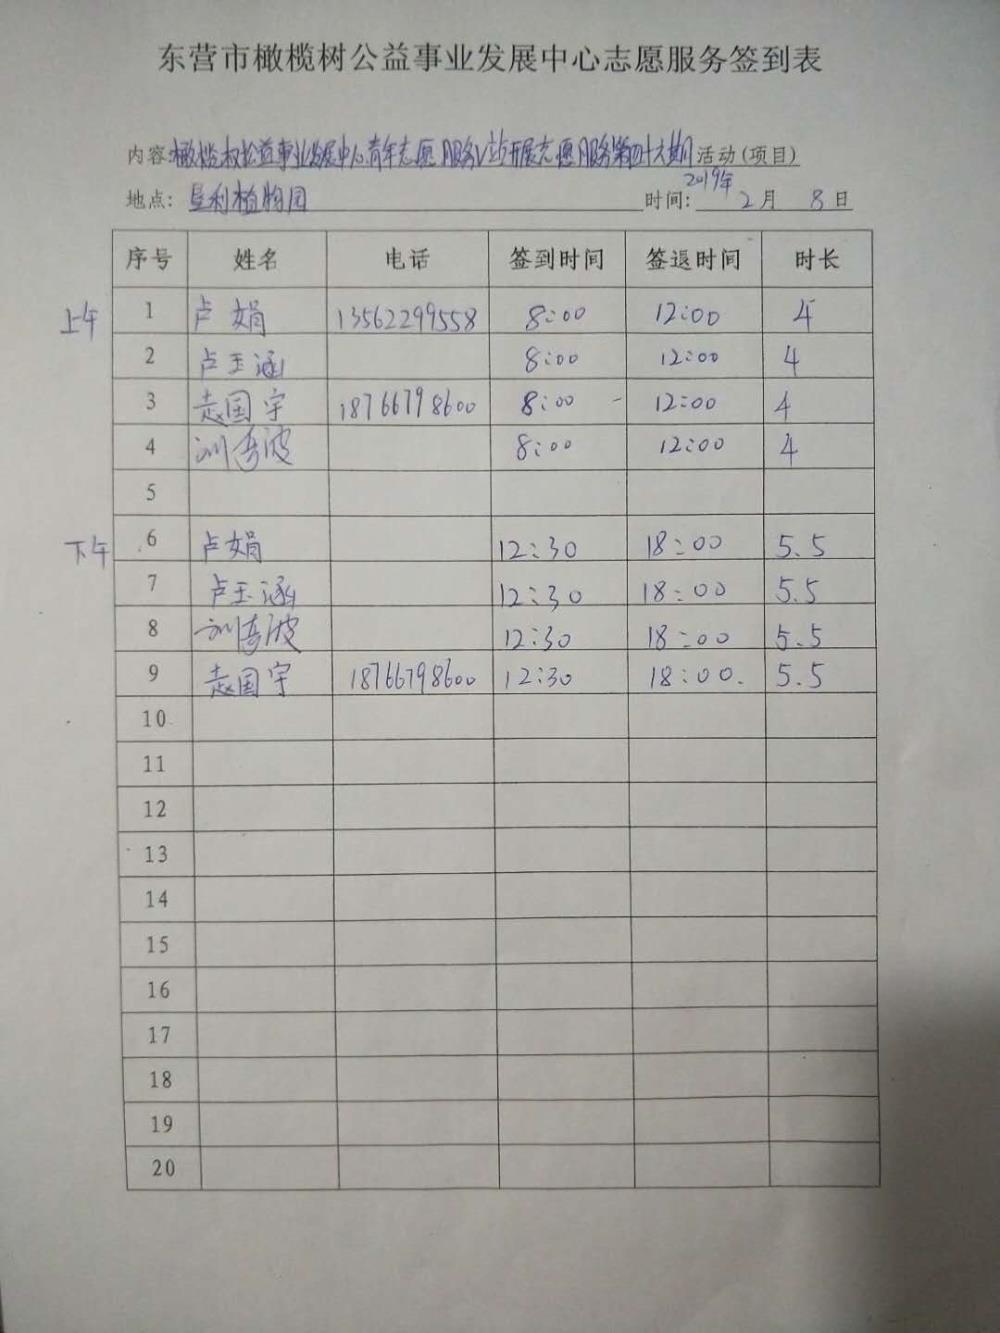 东营市橄榄树公益事业发展中心志愿服务签到表
内容:橄榄树公益事业发展中心青年志愿服务V站开展志愿服务第四十六期活动(项目)
地点: 垦利植物园 时间: 2019年 2月 8日
序号 姓名 电话 签到时间 签退时间 时长
上午 1 卢娟 13562299558 8:00 12:00 4
2 卢玉涵 8:00 12:00 4
3 赵国宇 18766798600 8:00 12:00 4
4 8:00 12:00 4
5
下午 6 卢娟 12:30 18:00 5.5
7 卢玉涵 12:30 18:00 5.5
8 12:30 18:00 5.5
9 赵国宇 18766798600 12:30 18:00. 5.5
10
11
12
13
14
15
16
17
18
19
20